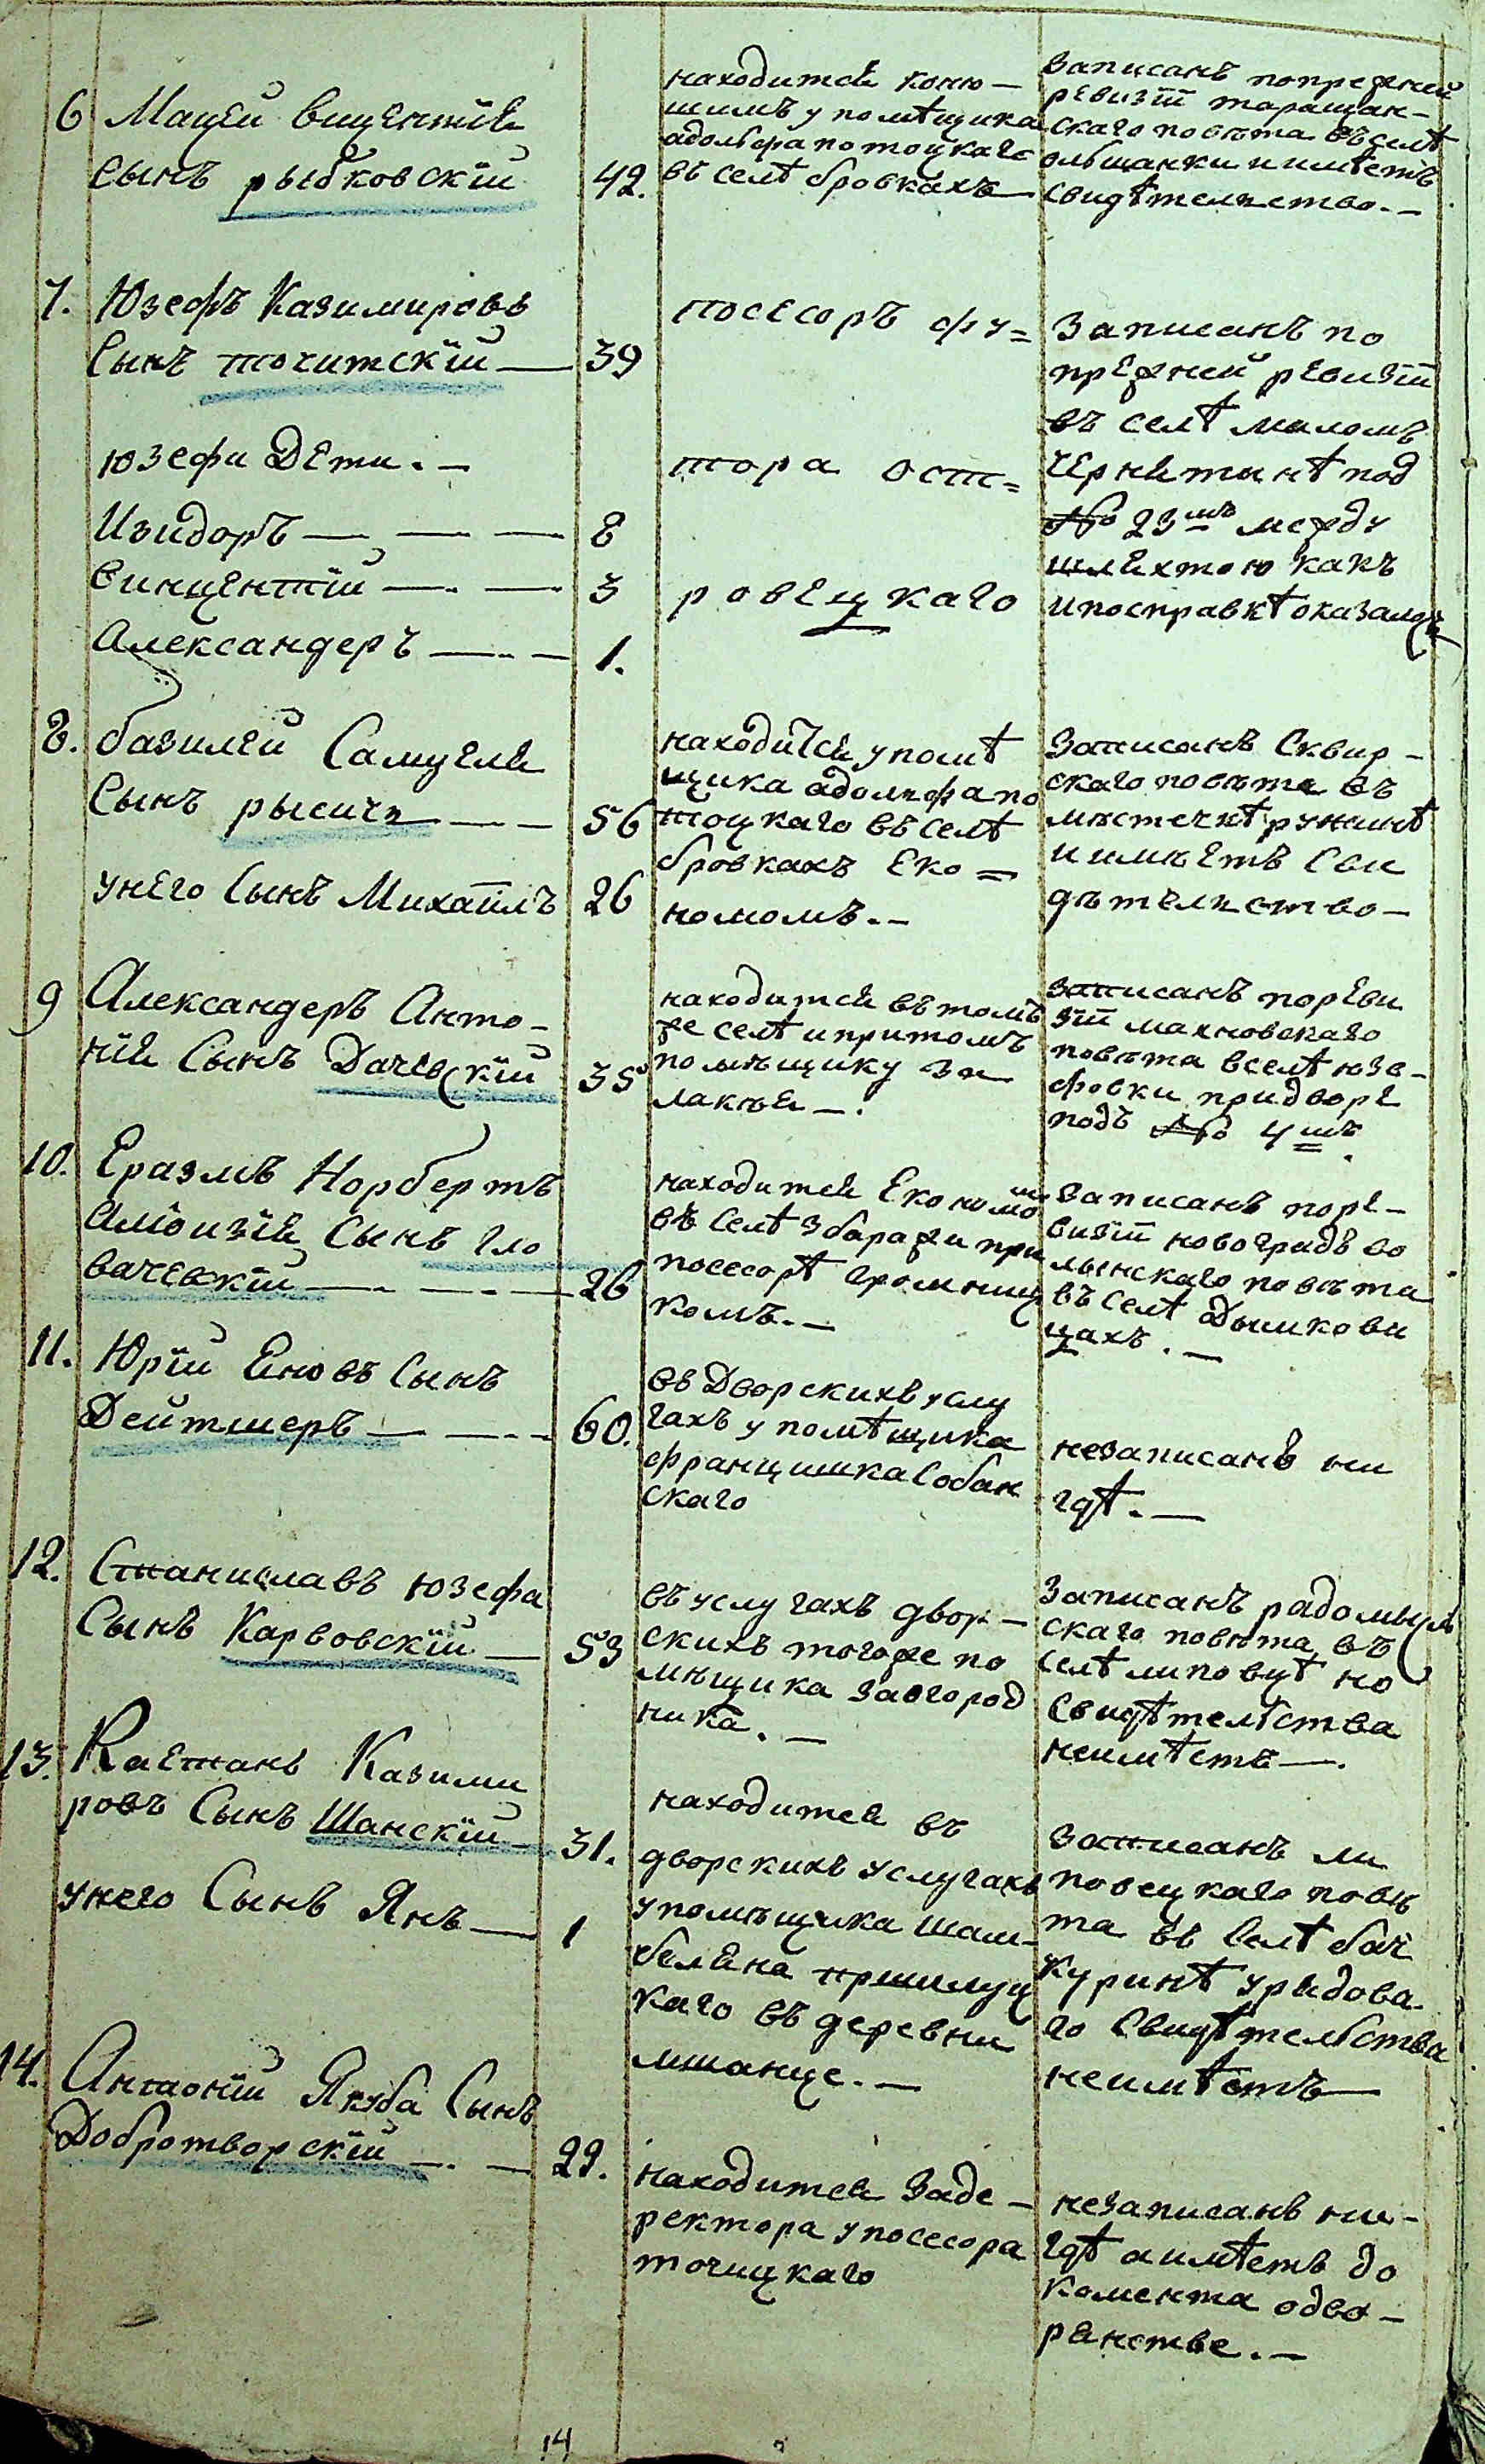 6 Мацей вицентія
сынъ рыбковскій 42.
находится коню —
шимъ у помѣщика
адольфа потоцкаго
въ селѣ бровкахъ
Записанъ попрежней
ревизіи таращан-
скаго повѣта въ селѣ
ольшанки и имѣетъ
свидѣтельство. —
7. Юзефъ Казимировъ
Сынъ точитскій — 39
юзефи Дети. —
Изидоръ — — — 8
Винцентій — — 3
Александеръ — — 1.
посесоръ фу=
тора ост=
ровецкаго
Записанъ по
прежней ревизіи
въ селѣ маломъ
чернятинѣ под
№ 23мъ между
шляхтою какъ
и посправкѣ оказалось
8. базилей Самуеля
Сынъ рысичь — — 56
унего Сынъ Михаилъ 26
находится у помѣ
щика адольфа по
тоцкаго въ селѣ
бровкахъ Еко =
номомъ. —
Записанъ Сквир —
скаго повѣта въ
мѣстечкѣ ружинѣ
и имѣетъ Сви
дѣтельство —
9 Александеръ Анто-
нія Сынъ Дачевскій 35
находится въ томъ
же селѣ и притомъ
помѣщику за
лакѣя —.
записанъ по реви
зіи махновскаго
повѣта вселѣ юзе-
фовки придворѣ
подъ № 4мъ.
10. Еразмъ Норбертъ
Алюизія Сынъ Гло
вачевскій — — — 26
находится Економомъ
въ Селѣ Збаражи при
посесорѣ громниц
комъ. —
Записанъ поре-
визіи новоградъ во
лынскаго повѣта
въ Селѣ Дымкови
цахъ. —
11. Юрій Яновъ Сынъ
Дейтшеръ — — — 60.
въ Дворскихъ услу
гахъ у помѣщика
францишка Собан
скаго
незаписанъ ни
гдѣ. —
12. Станиславъ юзефа
Сынъ Карвовскій — 53
въ услугахъ двор —
скихъ тогоже по
мѣщика заогород
ника. —
Записанъ радомысль
скаго повѣта въ
Селѣ липовцѣ но
Свидѣтельства
неимѣетъ —.
13. Каетанъ Казими
ровъ Сынъ Шанскій — 31.
унего Сынъ Янъ — 1
находится въ
дворскихъ услугахъ
упомѣщика шам-
беляна пршилуц
каго въ деревни
мшанце. —
записанъ ли
повецкаго повѣ
та въ Селѣ бач
куринѣ урядова-
го Свидѣтельства
неимѣетъ —
14. Антоній Якуба Сынъ
Добротворскій — — 29.
находится Заде —
ректора упосесора
точицкаго
незаписанъ ни-
гдѣ а имѣетъ до
комента одво —
рянстве. —
14